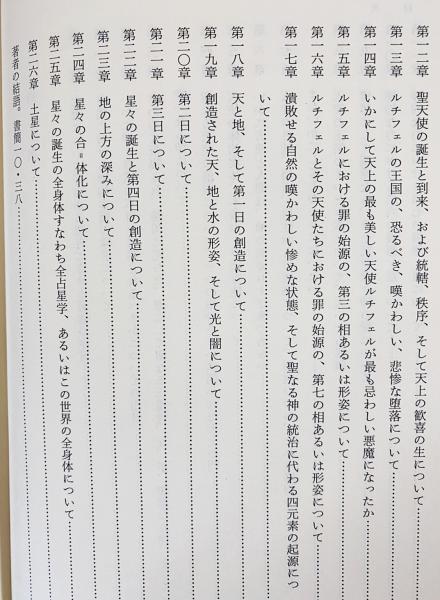 第一二章　聖天使の誕生と到来、および統轄、秩序、そして天上の歓喜の生について……………
第一三章　ルチフェルの王国の、恐るべき、嘆かわしい、悲惨な堕落について……………
第一四章　いかにして天上の最も美しい天使ルチフェルが最も忌わしい悪魔になったか……………
第一五章　ルチフェルにおける罪の始源の、第三の相あるいは形姿について……………
第一六章　ルチフェルとその天使たちにおける罪の始源の、第七の相あるいは形姿について……………
第一七章　潰敗せる自然の嘆かわしい惨めな状態、そして聖なる神の統治に代わる四元素の起源につ
いて……………
第一八章　天と地、そして第一日の創造について……………
第一九章　創造された天、地と水の形姿、そして光と闇について……………
第二〇章　第二日について……………
第二一章　第三日について……………
第二二章　星々の誕生と第四日の創造について……………
第二三章　地の上方の深みについて……………
第二四章　星々の合＝体化について……………
第二五章　星々の誕生の全身体すなわち全占星学、あるいはこの世界の全身体について……………
第二六章　土星について……………
著者の結語。書簡一〇・三八……………